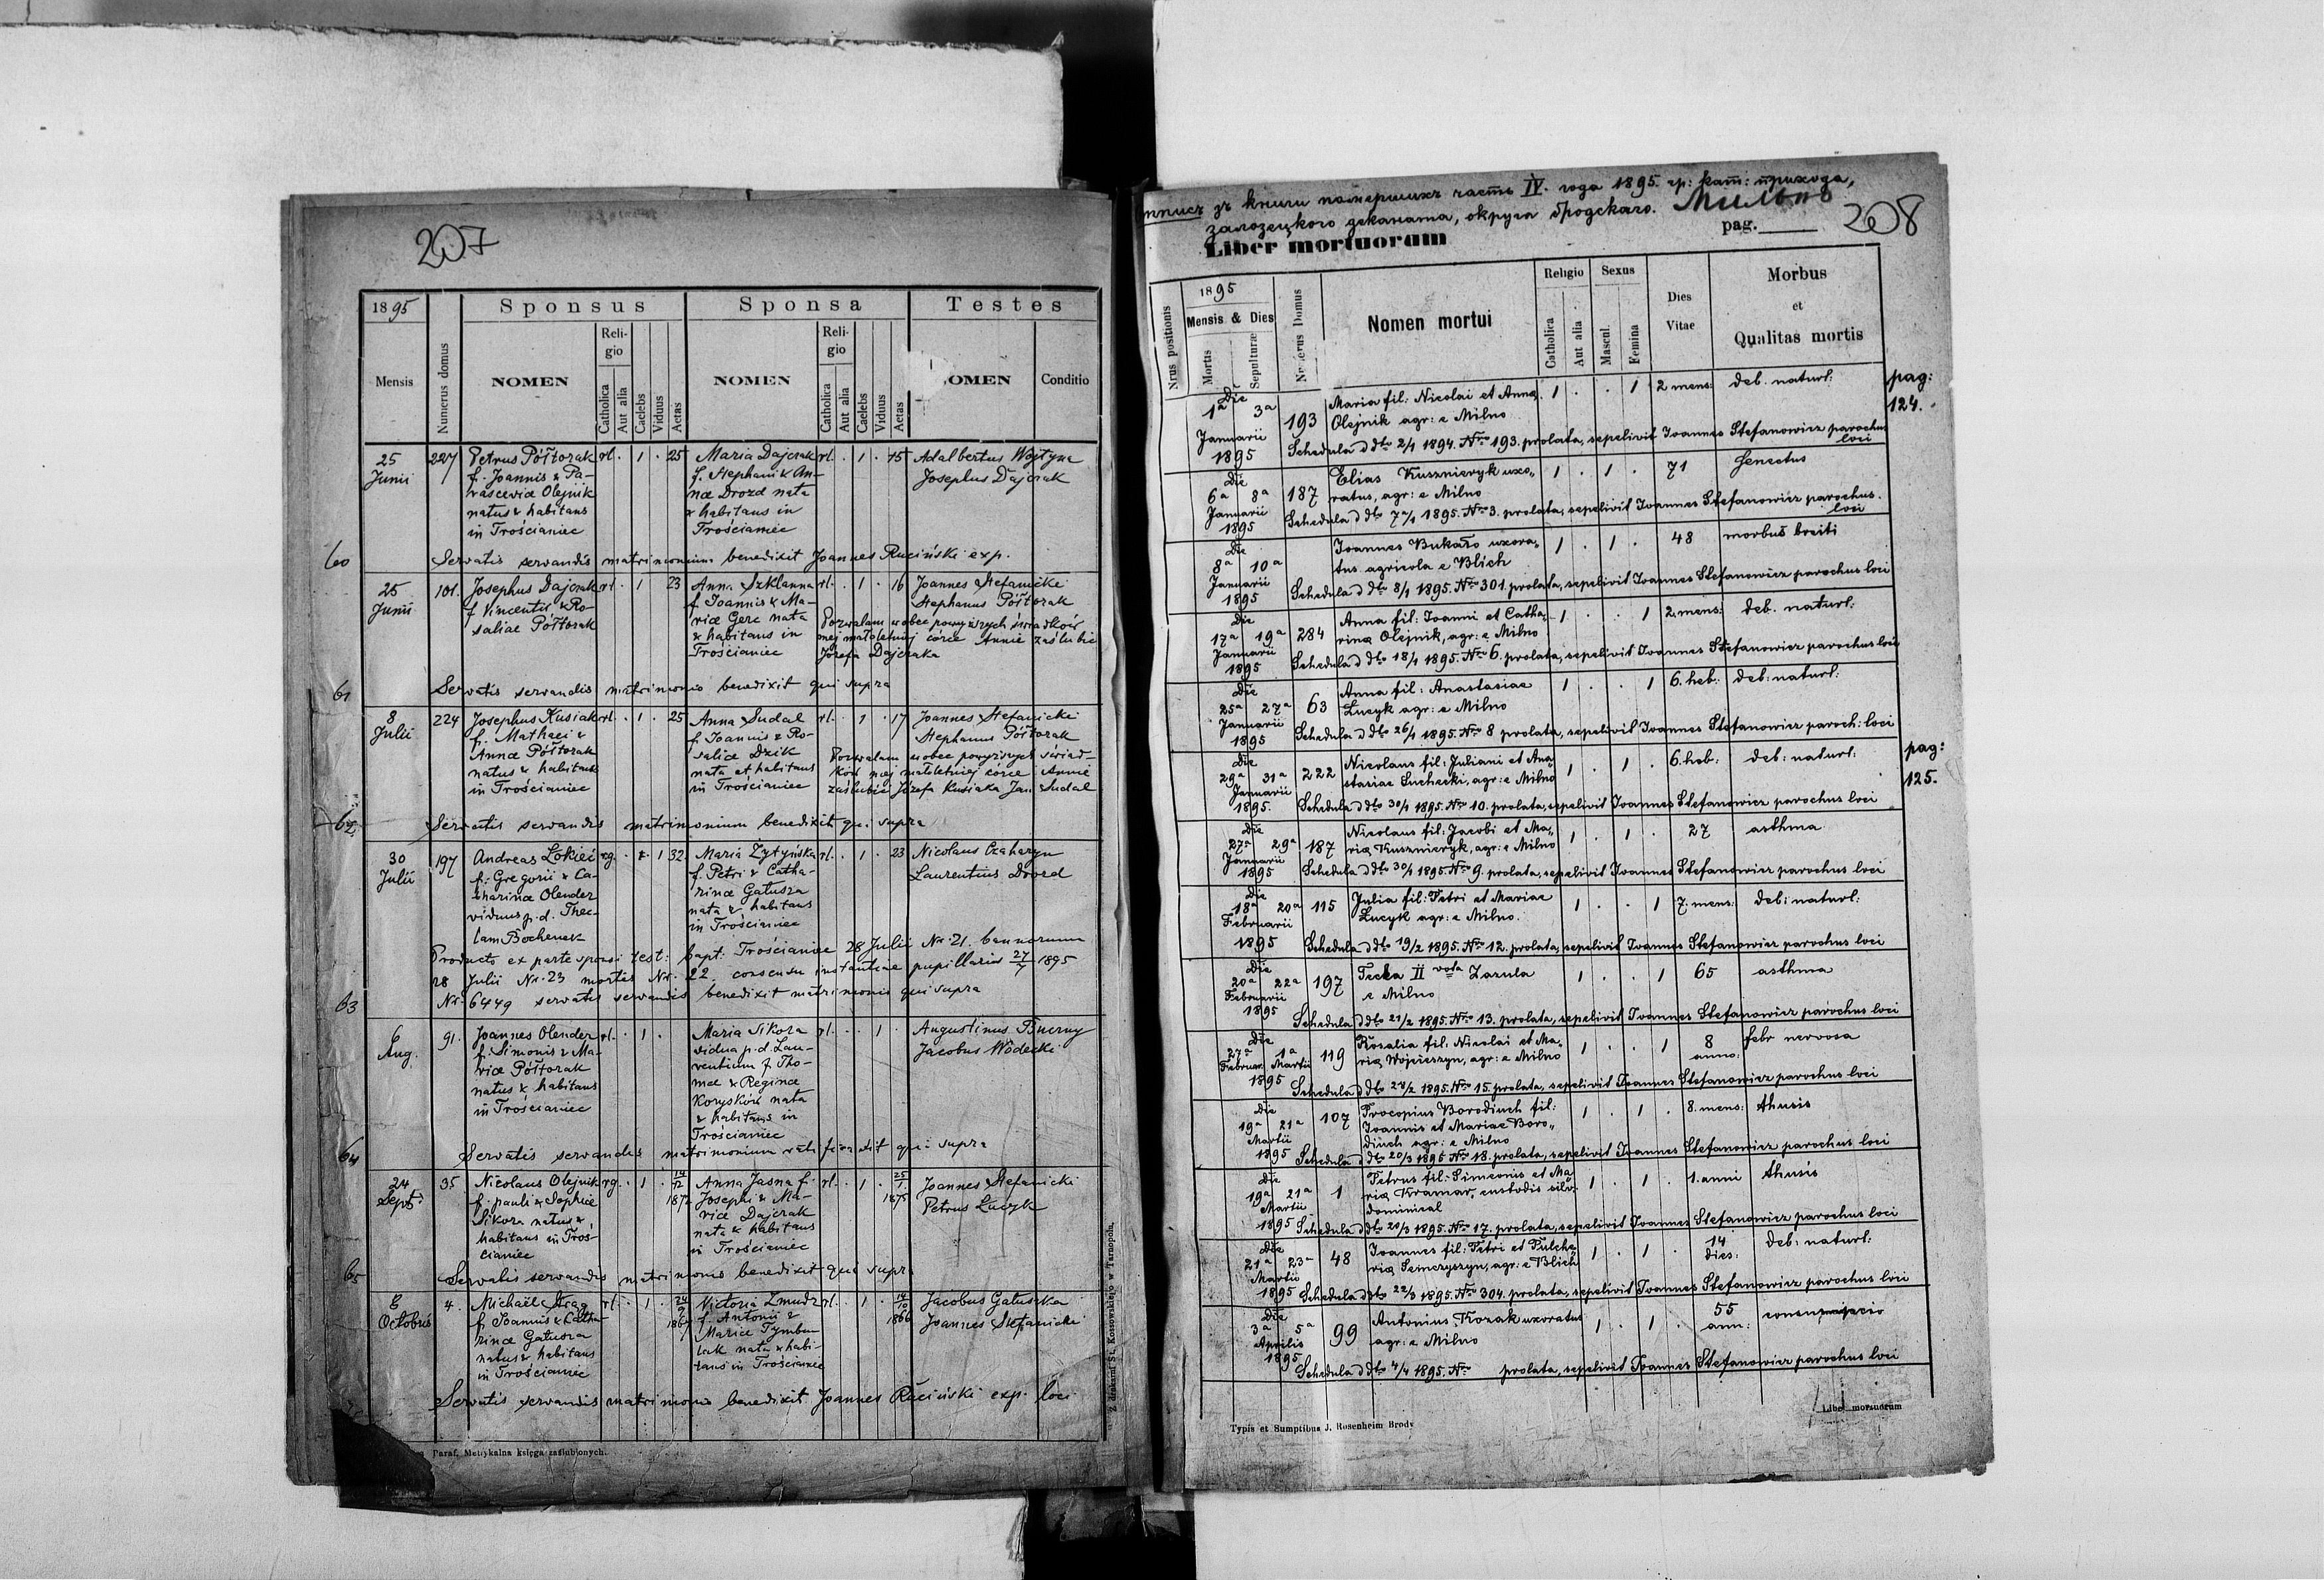 207
1895
Sponsus
Sponsa
Testes
Mensis
Numerus domus
NOMEN
Reli-
gio
Catholica
Aut alia
Caelebs
Viduus
Aetas
NOMEN
Reli-
gio
Catholica
Aut alia
Caelebs
Viduus
Aetas
OMEN
Conditio
60
25
Junii
227
Petrus Półtorak
f. Joannis & Pa-
rascevia Olejnik
natus & habitans
in Trościaniec
rl. . 1 . 25
Maria Dajczak
f. Stephani & An-
nae Drozd nata
& habitans in
Trościaniec
rl. . 1 . 15
Adalbertus Wojtyna
Josephus Dajczak
Servatis servandis matrimonium benedixit Joannes Ruciński exp.
61
25
Junii
101.
Josephus Dajczak
f. Vincentii & Ro-
saliae Półtorak
rl. . 1 23
Anna Szklanna
f. Joannis & Ma-
riae Gerc nata
& habitans in
Trościaniec
rl. . 1 . 16
Joannes Stefanicki
Stephanus Półtorak
Pozwalam wobec powyższych świadków
mej małoletniej córce Annie zaślubić
Józefa Dajczaka
Servatis servandis matrimonio benedixit qui supra
62
8
Julii
224
Josephus Kusiak
f. Mathaei &
Annae Półtorak
natus & habitans
in Trościaniec
rl. . 1 . 25
Anna Sudal
f. Joannis & Ro-
saliae Dzik
nata et habitans
in Trościaniec
rl. . 1 . 17
Joannes Stefanicki
Stephanus Półtorak
Pozwalam wobec powyższych świad-
ków mej małoletniej córce Annie
zaślubić Józefa Kusiaka Jan Sudal
Servatis servandis matrimonium benedixit qui supra
63
30
Julii
197
Andreas Łokieć
f. Gregorii & Ca-
tharinae Olender
viduus p. d. Thec-
lam Bochenek
rg. . 1 32
Maria Zytyńska
f. Petri & Catha-
rinae Gałusza
nata & habitans
in Trościaniec
rl. . 1 . 23
Nicolaus Czaharyn
Laurentius Drozd
Producto ex parte sponsi test: bapt: Trościaniec 28 Julii Nr. 21. bannorum
28 Julii Nr. 23 mortis Nr. 22 consensu instantiae pupillaris 27/7 1895
Nr. 6449 servatis servandis benedixit matrimonio qui supra
64
6
Aug.
91.
Joannes Olender
f. Simonis & Ma-
riae Półtorak
natus & habitans
in Trościaniec
rl. . 1 .
Maria Sikora
vidua p. d. Lau-
rentium f. Tho-
mae & Reginae
Koryskòw nata
& habitans in
Trościaniec
rl. . . 1 .
Augustinus
Jacobus Wòdecki
Servatis servandis matrimonium qui supra
65
24
Sept.
35
Nicolaus Olejnik
f. pauli & Sophiae
Sikora natus &
habitans in Troś-
cianiec
rg. . 1 . 14/12 1872
Anna Jasna f.
Josephi & Ma-
riae Dajczak
nata & habitans
in Trościaniec
rl. . 1 . 25/1 1875
Joannes Stefanicki
Petrus Łuczyk
Servatis servandis matrimonio benedixit qui supra
8
Octobris
4.
Michaël Strąg
f. Joannis & Catha-
rinae Gałusza
natus & habitans
in Trościaniec
rl. . 1 .
Victoria Zmudz
f. Antonii &
Mariae Tymbu-
lak nata & habi-
tans in Trościaniec
rl. . 1 . 14/10 1866
Jacobus Gałuszka
Joannes Stefanicki
Servatis servandis matrimonio benedixit Joannes Ruciński exp. loci
Paraf. Metrykalna księga zaślubionych.
Z drukarni St. Kossowskiego w Tarnopolu.
зъ книги помершихъ часть IV. года 1895. гр: кат: прихода,
залозецкого деканата, округа бродского. Мильно
208
Liber mortuorum
pag.
Nrus positionis
1895
Mensis & Dies
Mortis
Sepulturae
Numerus Domus
Nomen mortui
Religio
Catholica
Aut alia
Sexus
Mascul.
Femina
Dies
Vitae
Morbus
et
Qualitas mortis
pag:
124.
Die
1a 3a
Januarii
1895
193
Maria fil: Nicolai et Anna
Olejnik agr: e Milno
1 . . 1
2 mens:
deb. naturl:
Schedula d dto 2/1 1894. Nro 193. prolata, sepelivit Joannes Stefanowicz parochus
loci
Die
6a 8a
Januarii
1895
187
Elias Kusznieryk uxo-
ratus, agr: e Milno
1 . 1 .
71
Senectus
Schedula d dto 7/1 1895. Nro 3. prolata, sepelivit Joannes Stefanowicz parochus.
loci
Die
8a 10a
Januarii
1895
Joannes Bukało uxora-
tus agricola e Blich
1 . 1 .
48
morbus breiti
Schedula d dto 8/1 1895. Nro 301. prolata, sepelivit Joannes Stefanowicz parochus loci
Die
17a 19a
Januarii
1895
284
Anna fil: Joanni et Catha-
rina Olejnik, agr: e Milno
1 . . 1
2. mens:
deb. naturl:
Schedula d dto 18/1 1895. Nro 6. prolata, sepelivit Joannes Stefanowicz parochus loci
Die
25a 27a
Januarii
1895
63
Anna fil: Anastasiae
Łucyk agr: e Milno
1 . . 1
6. heb:
deb: naturl:
Schedula d dto 26/1 1895. Nro 8 prolata, sepelivit Joannes Stefanowicz paroch: loci
pag:
125.
Die
29a 31a
Januarii
1895.
222
Nicolaus fil: Juliani et Ana-
stasiae Suchecki, agr: e Milno
1 . 1 .
6. heb:
deb: naturl:
Schedula d dto 30/1 1895. Nro 10. prolata, sepelivit Joannes Stefanowicz parochus loci
Die
27a 29a
Januarii
1895
187
Nicolaus fil: Jacobi et Ma-
ria Kusznieryk, agr: e Milno
1 . 1 .
27
asthma
Schedula d dto 30/1 1895. Nro 9. prolata, sepelivit Joannes Stefanowicz parochus loci
Die
18a 20a
Februarii
1895
115
Julia fil: Petri et Mariae
Łucyk agr: e Milno.
1 . . 1
7. mens:
deb: naturl:
Schedula d dto 19/2 1895. Nro 12. prolata, sepelivit Joannes Stefanowicz parochus loci
Die
20a 22a
Februarii
1895
197
Tecla II vota Zazula
e Milno
1 . . 1
65
asthma
Schedula d dto 21/2 1895. Nro 13. prolata, sepelivit Joannes Stefanowicz parochus loci
Die
27a 1a
Februar. Martii
1895
119
Rosalia fil. Nicolai et Ma-
ria Wojcieszyn, agr: e Milno
1 . . 1
8
anno:
febr nervosa
Schedula d dto 28/2 1895. Nro 15. prolata, sepelivit Joannes Stefanowicz parochus loci
Die
19a 21a
Martii
1895
107
Procopius Borodiuch fil:
Joannis et Mariae Boro-
diuch agr: e Milno
1 . 1 .
8. mens:
thusis
Schedula d dto 20/3 1895 Nro 18. prolata, sepelivit Joannes Stefanowicz parochus loci
Die
19a 21a
Martii
1895
1
Petrus fil: Simeonis et Ma-
ria Kramar, custodis silv:
dominical
1 . 1 .
1. anni
thusis
Schedula d dto 20/3 1895. Nro 17. prolata, sepelivit Joannes Stefanowicz parochus loci
Die
21a 23a
Martii
1895
48
Joannes fil: Petri et Pulche-
ria Semczyszyn, agr: e Blich
1 . 1 .
14
dies:
deb: naturl:
Schedula d dto 22/3 1895. Nro 304. prolata, sepelivit Joannes Stefanowicz parochus loci
Die
3a 5a
Aprilis
1895
99
Antonius Kozak uxoratus
agr: e Milno
1 . 1 .
55
ann:
Schedula d dto 4/4 1895. Nro prolata, sepelivit Joannes Stefanowicz parochus loci
Typis et Sumptibus J. Rosenheim Brody
Liber mortuorum